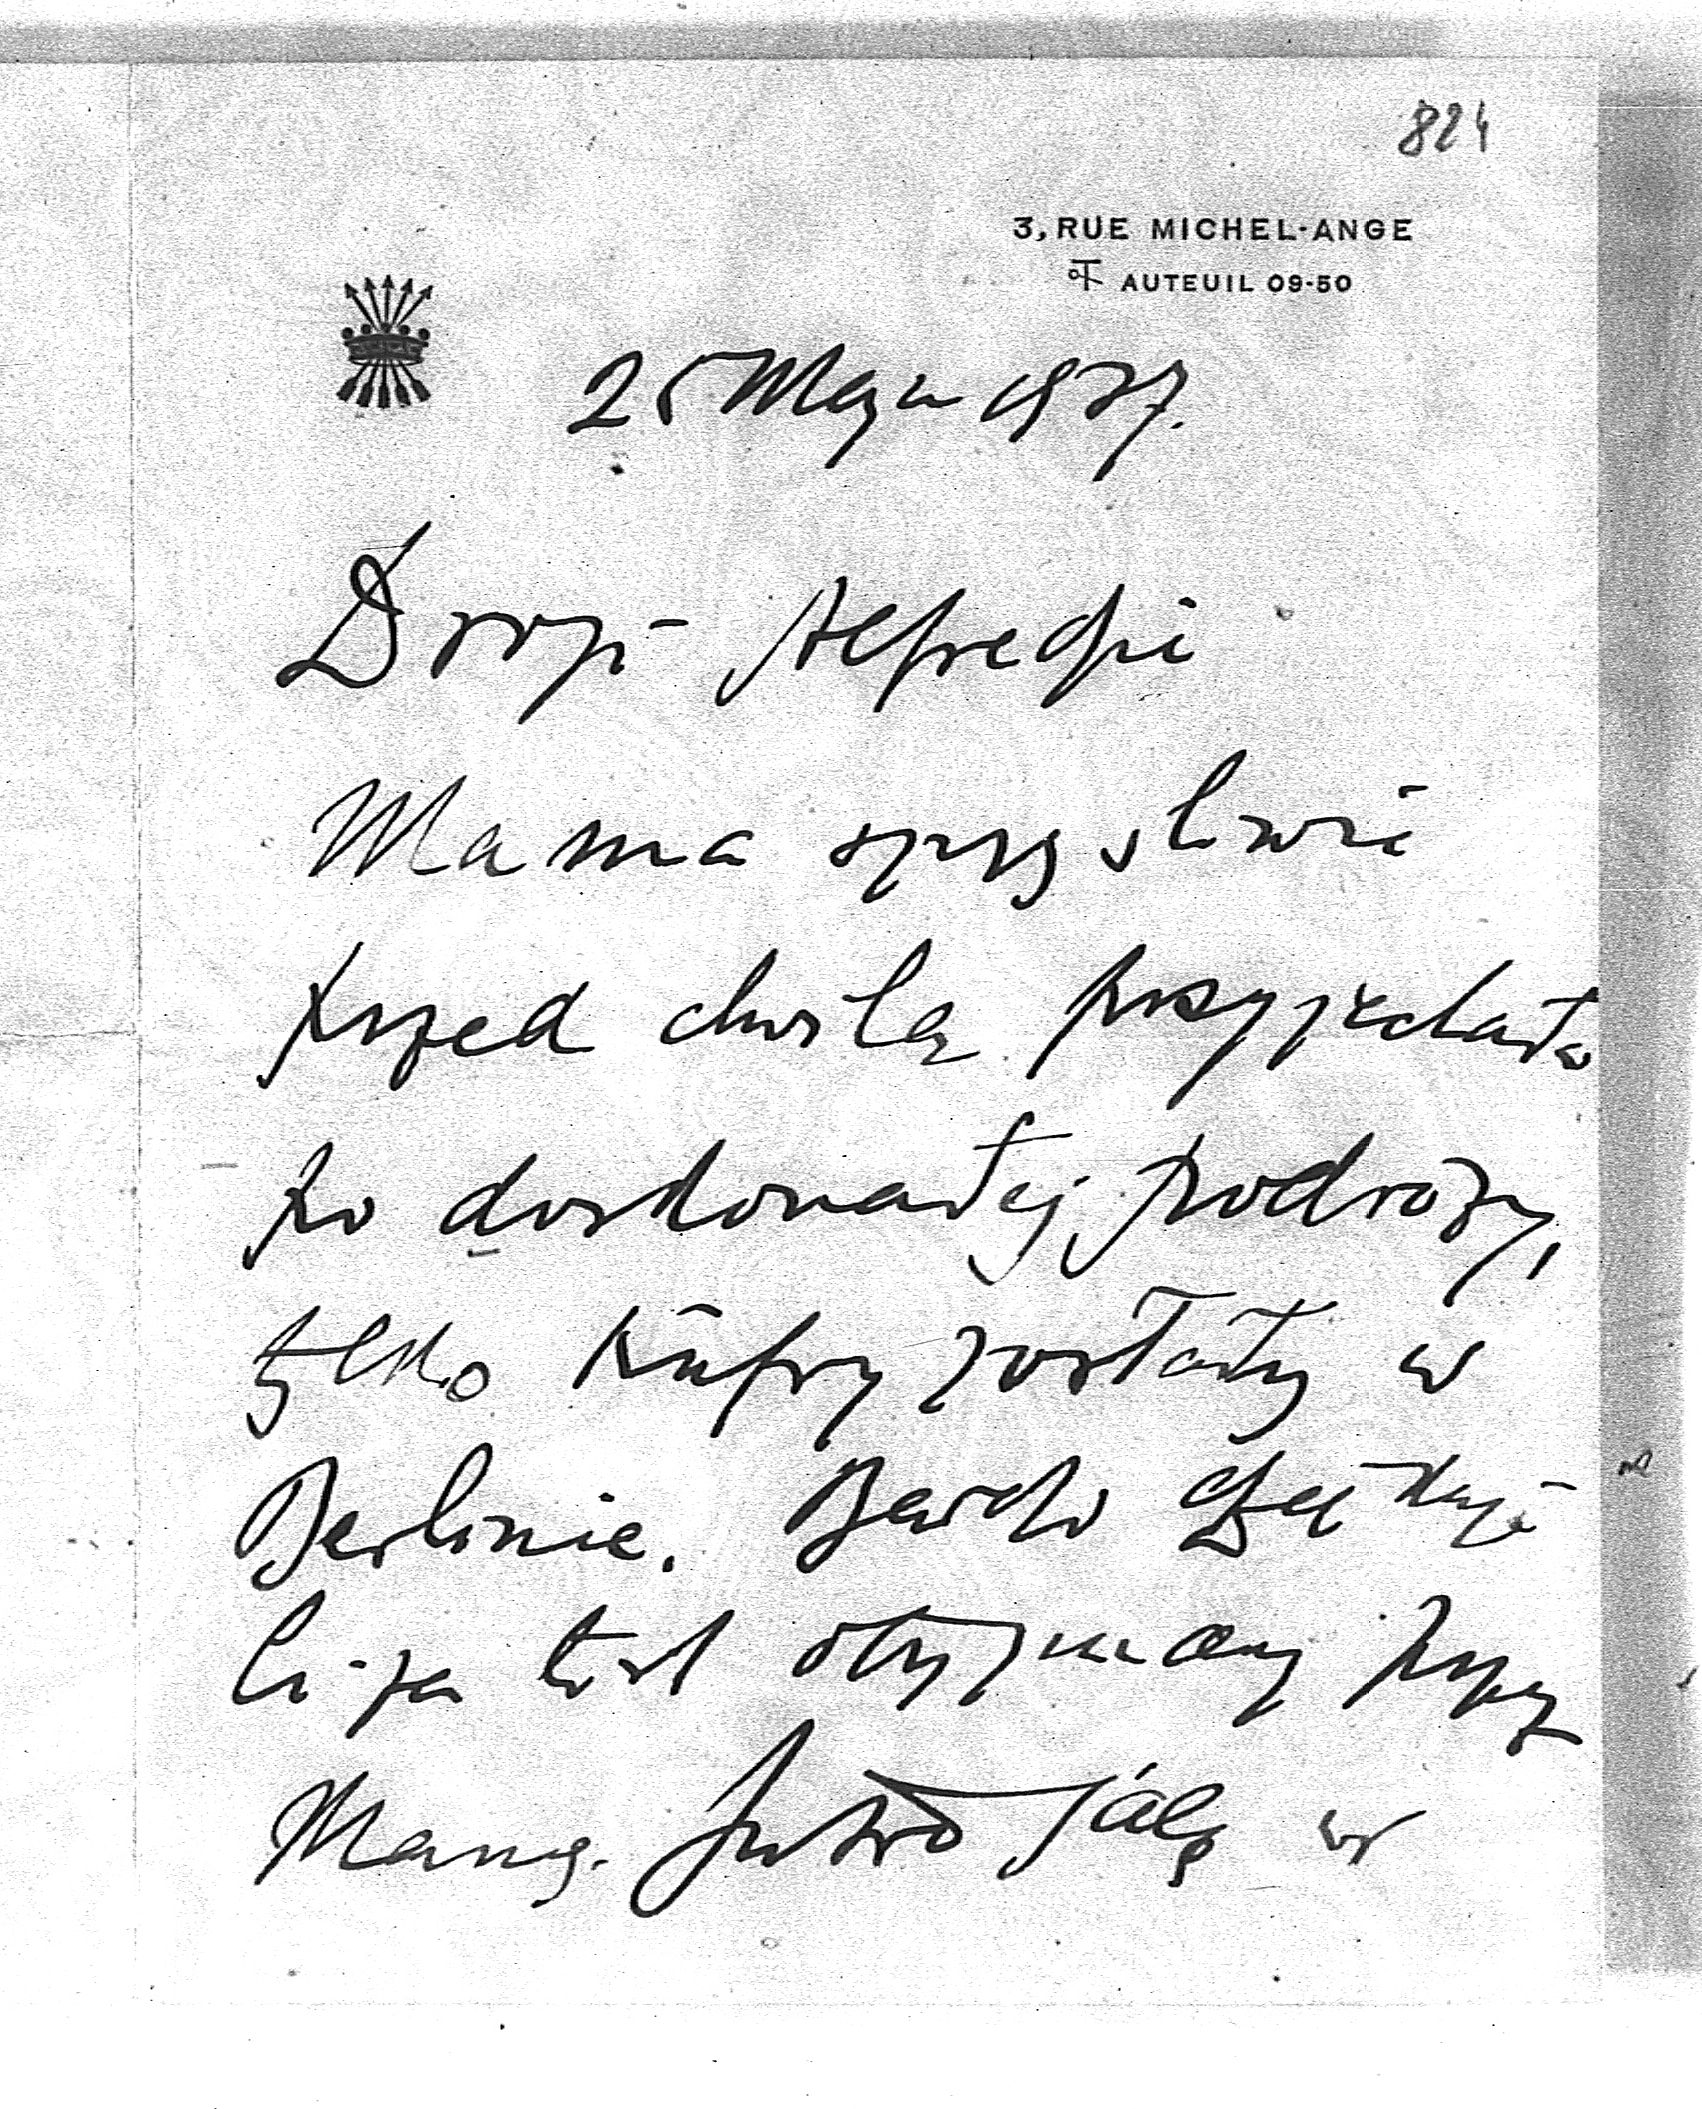 824
3, RUE MICHEL-ANGE
AUTEUIL 09-50
25 Maja 1937.
Drogi Alfredzie
Mama szczęśliwie
przed chwilą przyjechała
po doskonałej podróży,
tylko kufry zostały w
Berlinie. Bardzo dziękuję
Ci za list otrzymany przez
Mamę. Jutro jadę w